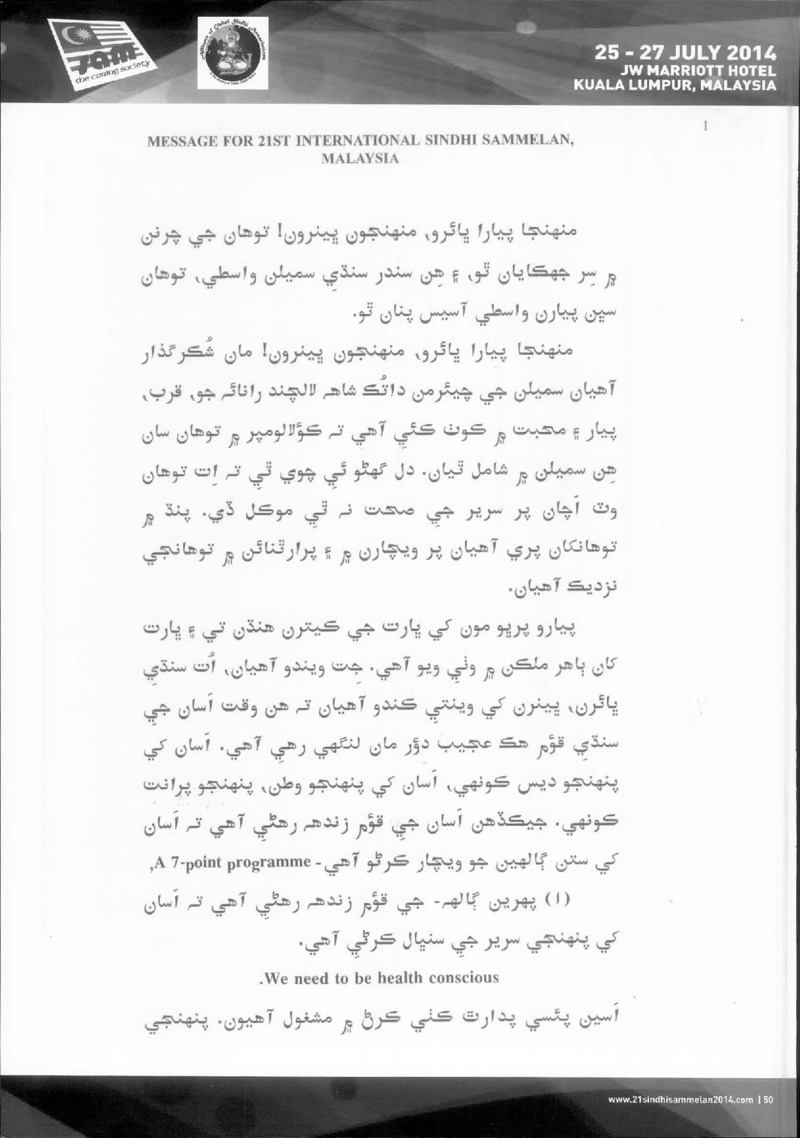 SAM
the caring society
Alliance of Global Sindhi Associations
25 - 27 JULY 2014
JW MARRIOTT HOTEL
KUALA LUMPUR, MALAYSIA
1
MESSAGE FOR 21ST INTERNATIONAL SINDHI SAMMELAN,
MALAYSIA
منهنجا پيارا ڀائرو، منهنجون ڀينرون! توهان جي چرنن
۾ سِر جهڪايان ٿو، ۽ هِن سندر سنڌي سميلن واسطي، توهان
سڀن پيارن واسطي آسيس پنان ٿو.
منهنجا پيارا ڀائرو، منهنجون ڀينرون! مان شُڪر گذار
آهيان سميلن جي چيئرمن داتُڪ شاهہ لالچند رانائہ جو، قرب،
پيار ۽ محبت ۾ ڪوٺ ڪئي آهي تہ ڪؤلالومپر ۾ توهان سان
هِن سميلن ۾ شامل ٿيان. دل گهڻو ئي چوي ٿي تہ اِت توهان
وٽ اَچان پر سرير جي صحت نہ ٿي موڪل ڏي. پنڌ ۾
توهانکان پري آهيان پر ويچارن ۾ ۽ پرارٿنائن ۾ توهانجي
نزديڪ آهيان.
پيارو پرڀو مون کي ڀارت جي ڪيترن هنڌن تي ۽ ڀارت
کان ٻاهر ملڪن ۾ وٺي ويو آهي. جِت ويندو آهيان، اُت سنڌي
ڀائرن، ڀينرن کي وينتي ڪندو آهيان تہ هن وقت اَسان جي
سنڌي قؤم هڪ عجيب دؤر مان لنگهي رهي آهي. اَسان کي
پنهنجو ديس ڪونهي، اَسان کي پنهنجو وطن، پنهنجو پرانت
ڪونهي. جيڪڏهن اَسان جي قؤم زندهہ رهڻي آهي تہ اَسان
کي ستن ڳالهين جو ويچار ڪرڻو آهي- A 7-point programme,
(۱) پهرين ڳالهہ- جي قؤم زندهہ رهڻي آهي تہ اَسان
کي پنهنجي سرير جي سنڀال ڪرڻي آهي.
We need to be health conscious.
اَسين پئسي پدارٿ ڪٺي ڪرڻ ۾ مشغول آهيون. پنهنجي
www.21sindhisammelan2014.com | 50